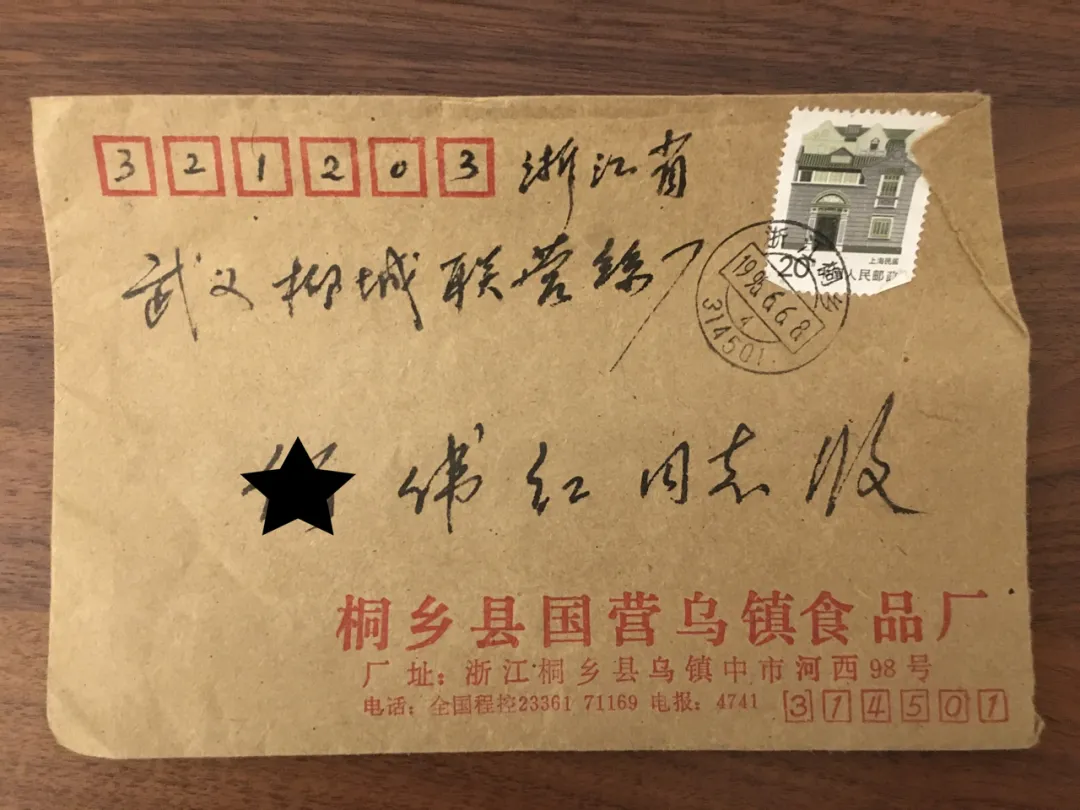 321203 浙江省
武义柳城联营丝厂
伟红同志收
上海民居
20
人民邮政
浙
1996.6.8
4
314501
桐乡县国营乌镇食品厂
厂址：浙江桐乡县乌镇中市河西98号
电话：全国程控23361 71169 电报：4741 314501